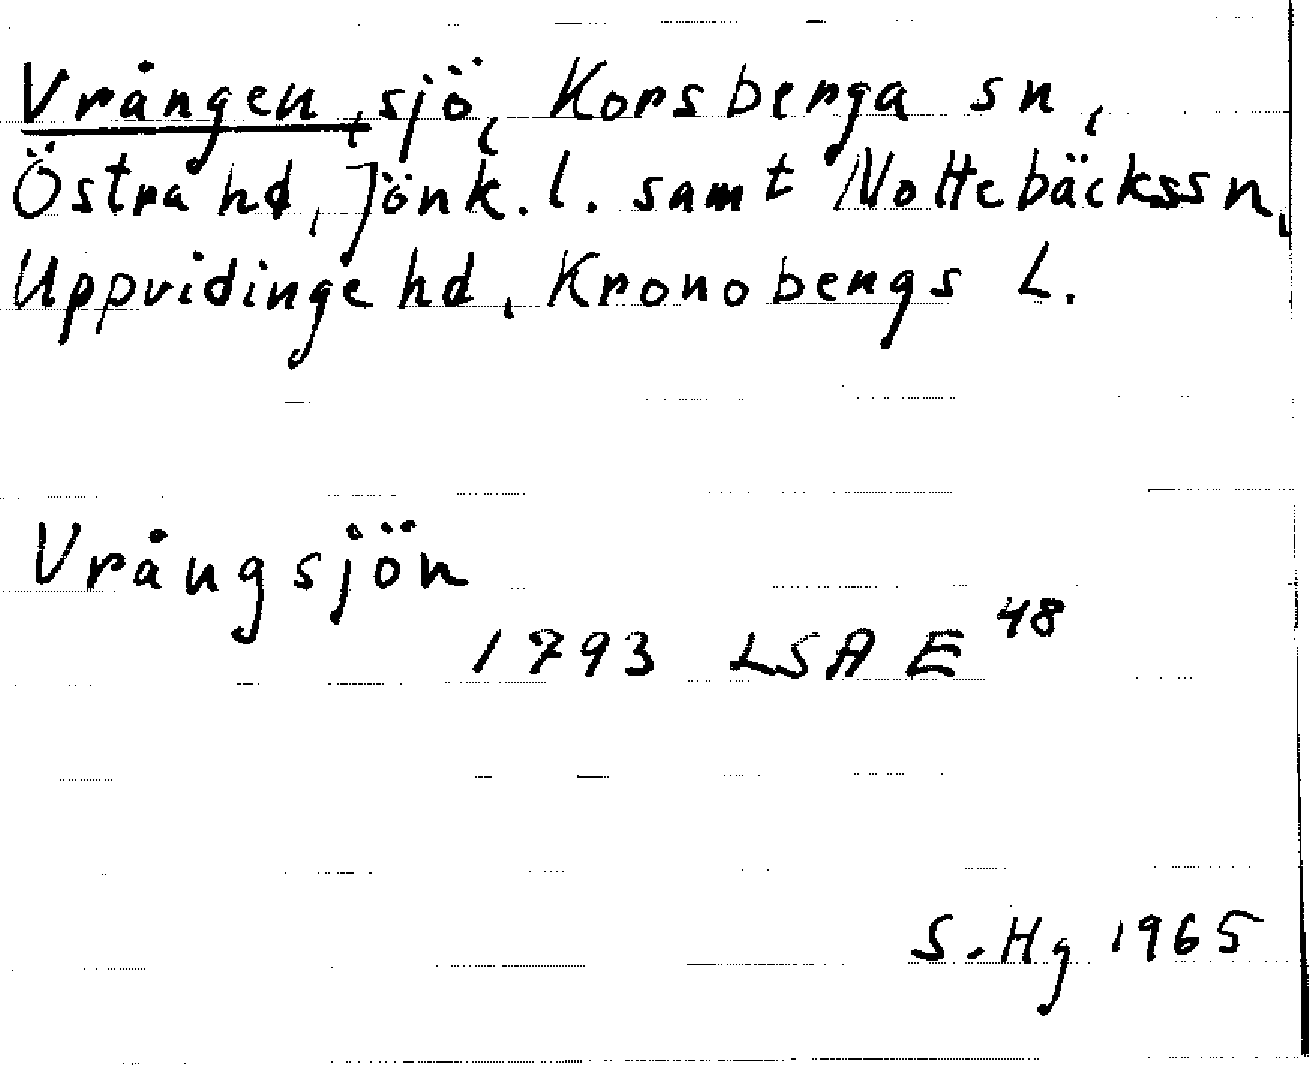 Vrången, sjö, Korsberga sn,
Östra hd, Jönk. l. samt Nottebäckssn,
Uppvidinge hd, Kronobergs L.
Vrångsjön
1793 LSA E 48
S. Hg 1965